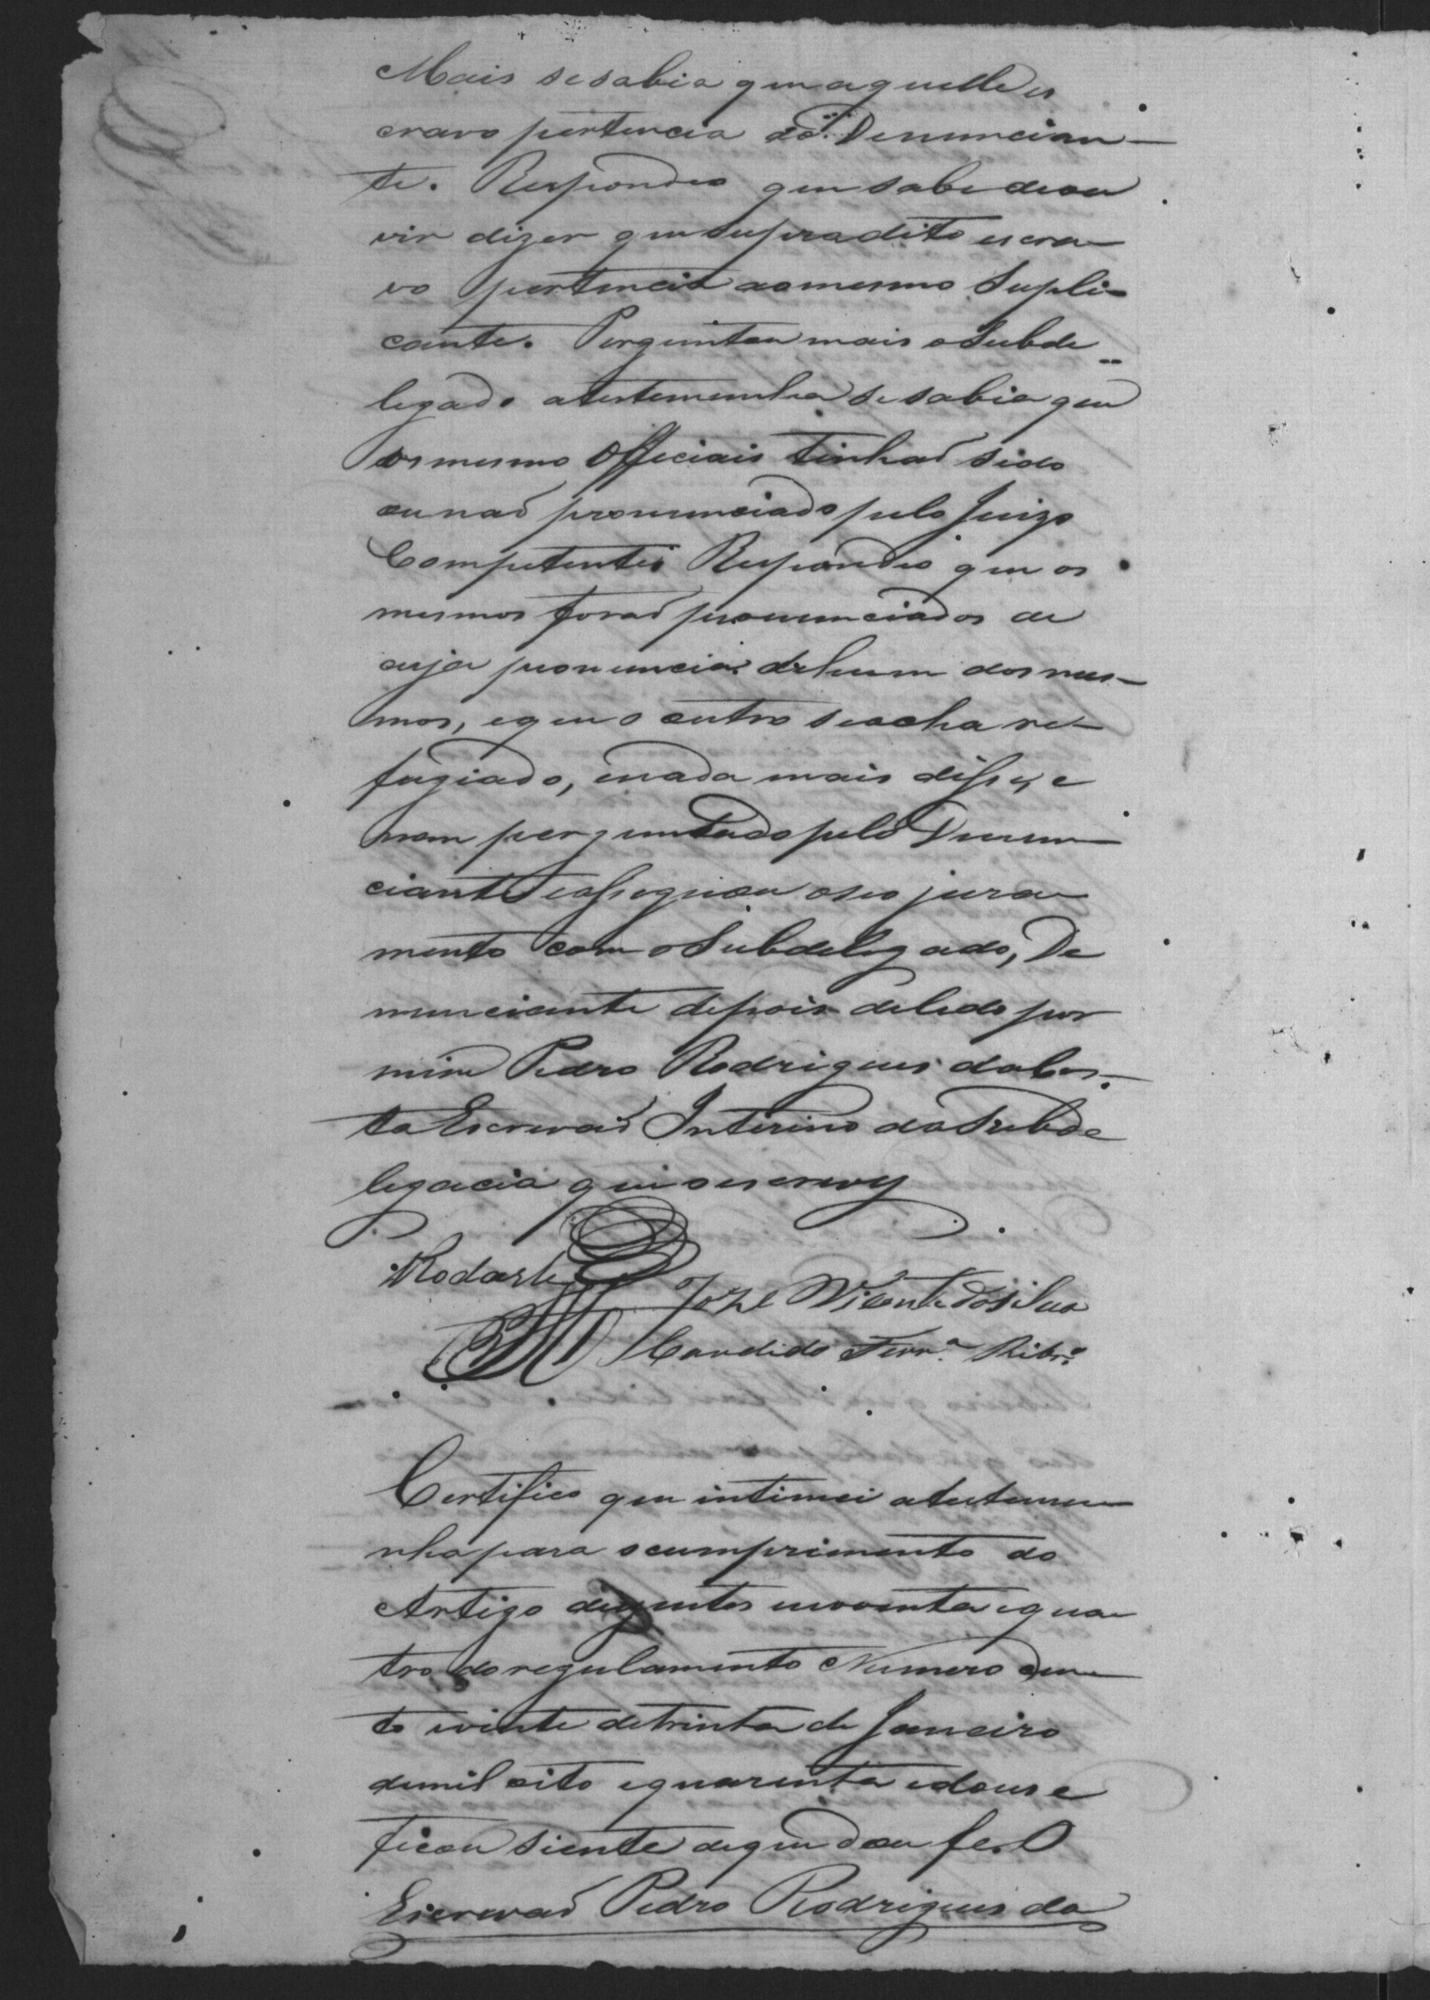 Mais se sabia que aquelle es
cravo pertencia ao Denuncian
te. Respondeo que sabe de ou
vir dizer que supradito escra
vo pertencia ao mesmo Supli
cante. Perguntou mais o Subde
legado a testemunha se sabia que
os mesmo Officiais tinhaõ sido
ou naõ pronunciado pelo Juizo
Competente Respondeo que os
mesmos foraõ pronunciados de
cuja pronuncia hum dos mes
mos, e que o outro se acha re
fugiado, e nada mais disse, e
nem perguntado pelo Denun
ciante e assignou o seo jura
mento com o Subdelegado, De
nunciante depois de lido por
mim Pedro Rodrigues da Cos
ta Escrivaõ Interino da Subde
legacia que o escrevy
Rodarte
Joze Vicente da Silva
Candido Ferr.ª Ribr.º
Certifico que intimei a testemu
nha para o cumprimento do
Artigo duzentos e noventa e qua
tro do regulamento Numero cen
to e vinte de trinta de Janeiro
de mil oito e quarenta e dous e
ficou siente de que dou fe. O
Escrivaõ Pedro Rodrigues da